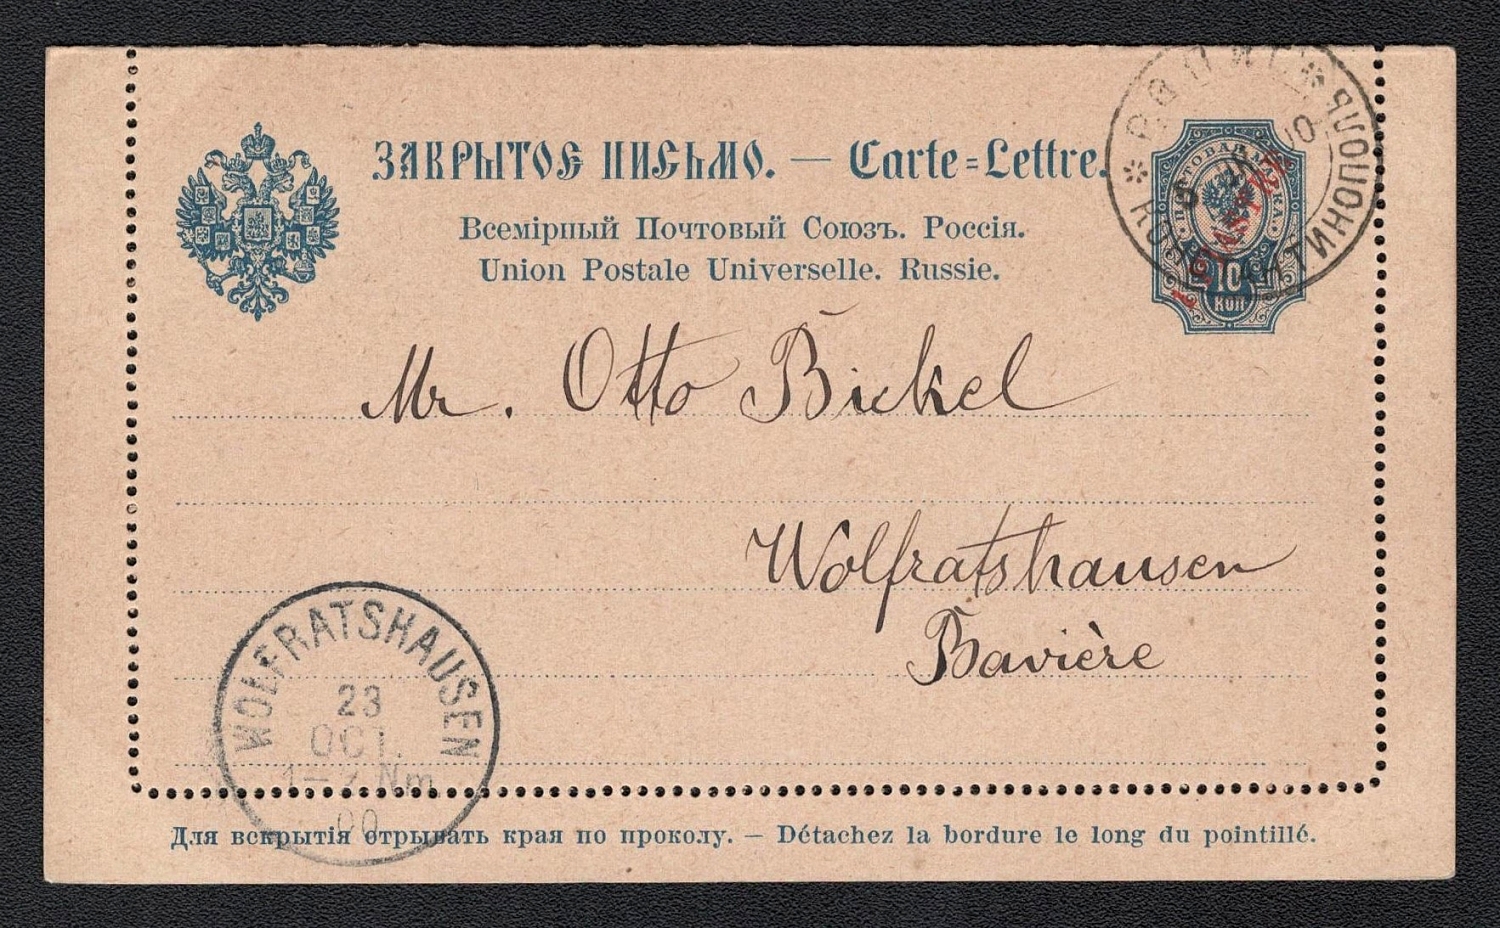 ЗАКРЫТОЕ ПИСЬМО. — Carte=Lettre.
Всемірный Почтовый Союзъ. Россія.
Union Postale Universelle. Russie.
1 PIASTRE
10
КОП
Mr. Otto Bickel
Wolfratshausen
Bavière
WOLFRATSHAUSEN
23
OCT.
1–2 Nm
00
Для вскрытія отрывать края по проколу. — Détachez la bordure le long du pointillé.